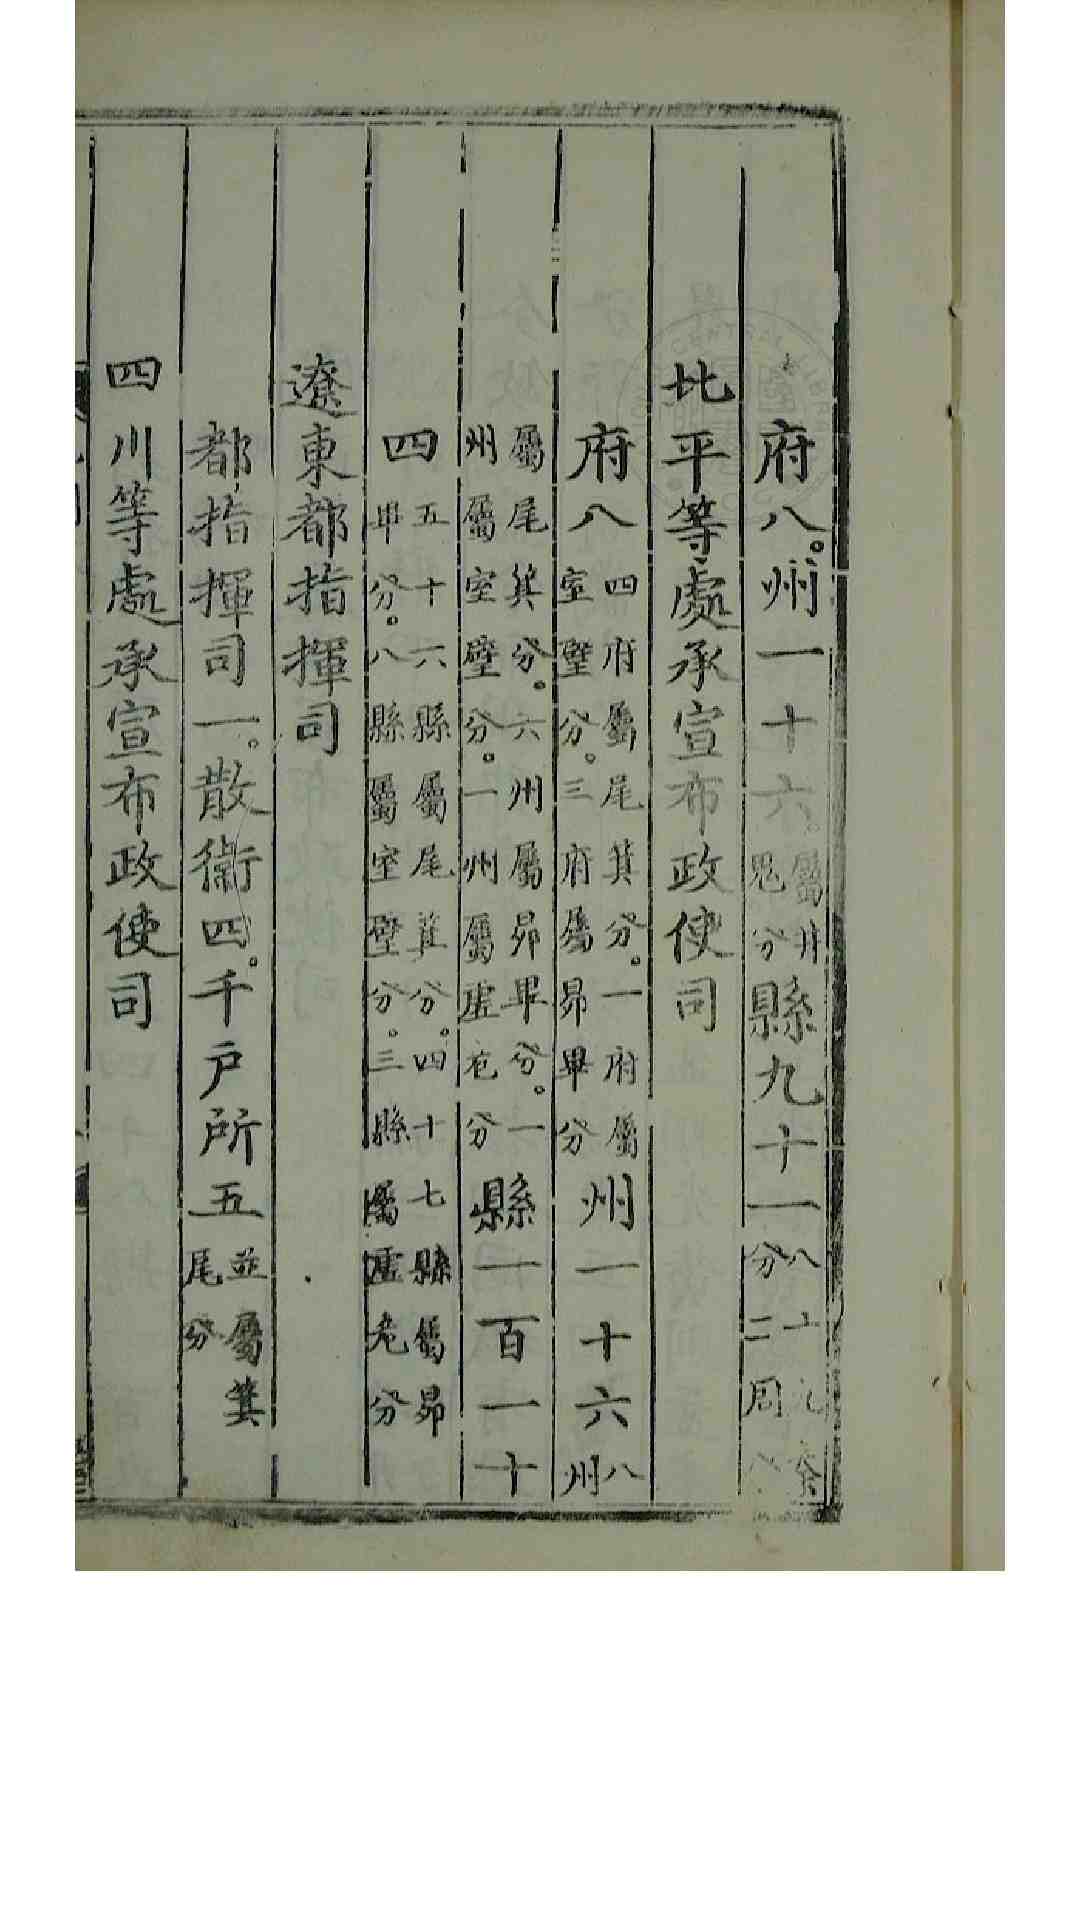 府八。州一十六。屬井鬼分縣九十一八十九秦分二周
北平等處承宣布政使司
府八四府屬尾箕分。一府屬室壁分。三府屬昴畢分州一十六八州
屬尾箕分。六州屬昴畢分。一州屬室壁分。一州屬虛危分縣一百一十
四五十六縣屬尾箕分。四十七縣屬昴畢分。八縣屬室壁分。三縣屬虛危分
遼東都指揮司
都指揮司一。散衛四。千戶所五並屬箕尾分
四川等處承宣布政使司